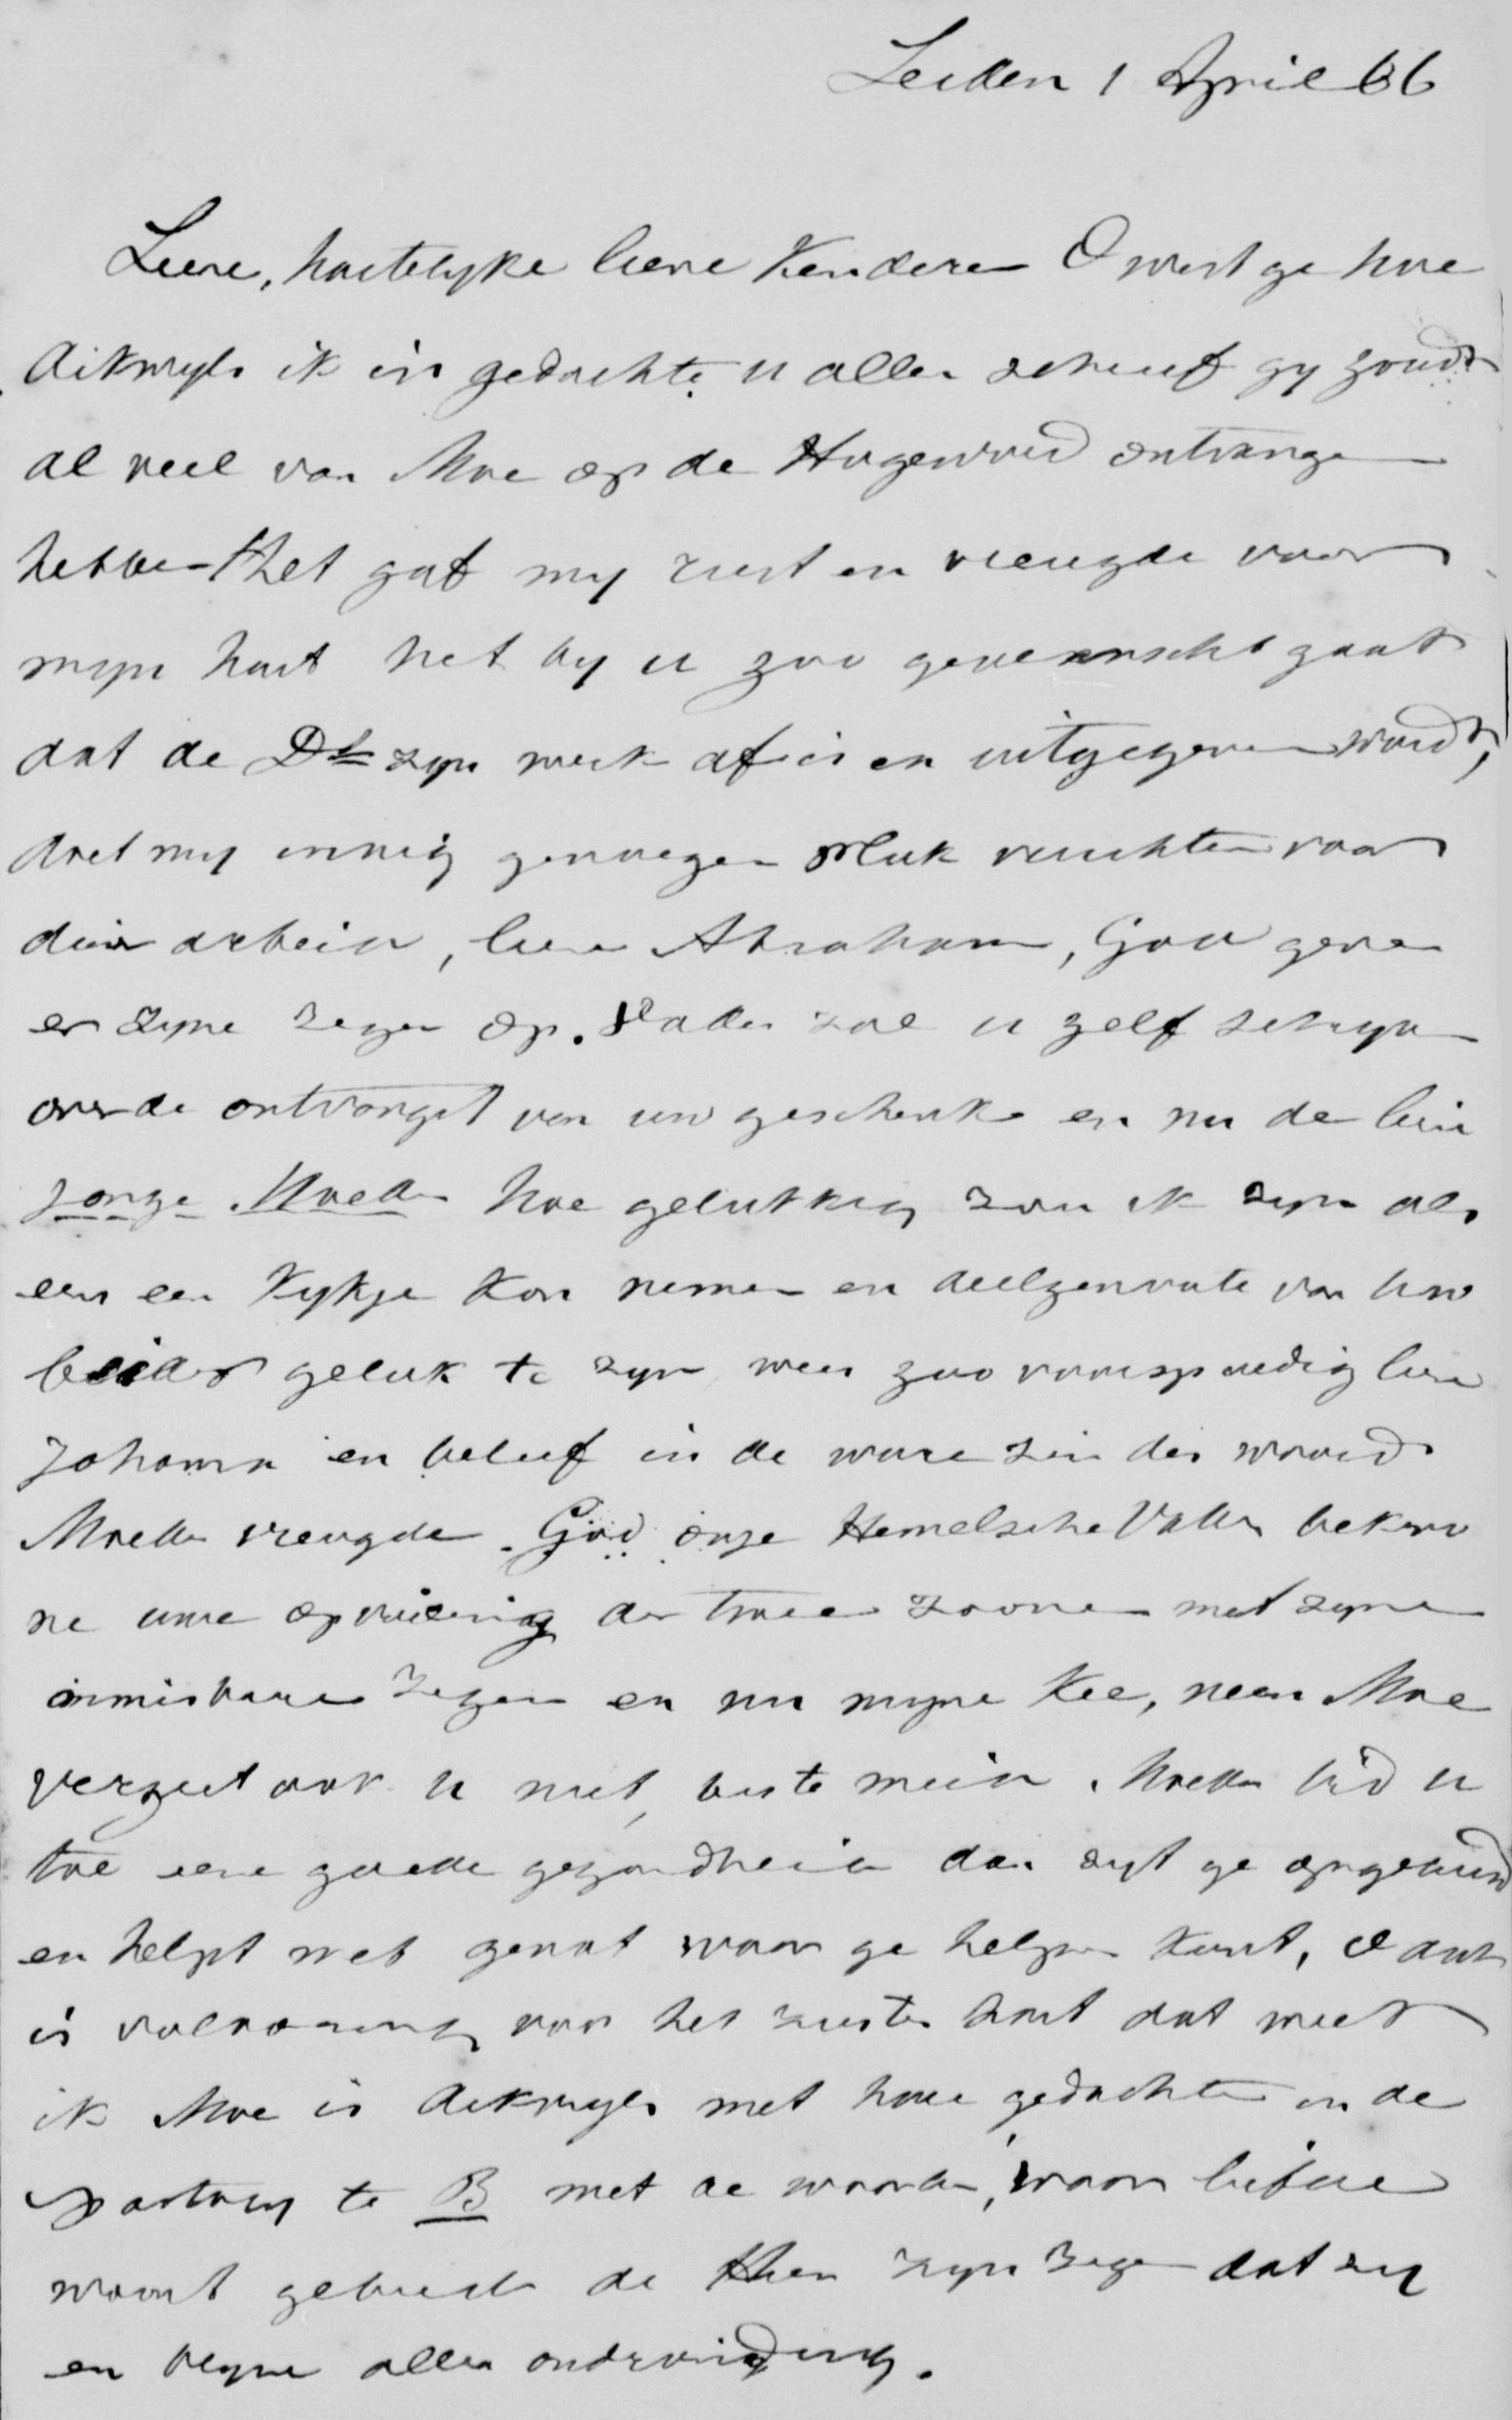 Leiden 1 April 66
Lieve, hartelyke lieve Kinderen O wist ge hoe
dikwyls ik in gedachte u allen schreef gy zoudt
al veel van Moe op de Hogewoerd ontvangen
hebben Het gaf my rust en vreugde voor
myn hart het by u zoo gewenscht gaat
dat de Dr zyn werk af is en uitgegeven wordt,
doet my innig genoegen pluk vruchten van
dien arbeid, lieve Abraham, God geve
er zyne zegen op. Vader zal u zelf schryven
over de ontvangst van uw geschenk en nu de lieve
jonge Moeder hoe gelukkig zou ik zyn als
eens een Kykje kon nemen en deelgenoote van uw
beider geluk te zyn wees zoo voorspoedig lieve
Johanna en beleef in de ware zin des woords
Moeder vreugde. God onze Hemelsche Vader bekroo
ne uwe opvoeding der twee zoonen met zyne
onmisbare zegen en nu myne Kee, neen Moe
vergeet ook u niet, beste meid. Moeder bid u
toe eene goede gezondheid dan zyt ge opgeruimd
en helpt met genot waar ge helpen kunt, dank
is voldoening voor het zuster hart dat weet
ik Moe is dikwyls met hare gedachten in de
pastory te B met de woorden, waar liefde
woont gebiedt de Heer zyn zegen dat zy
en blyve aller ondervinding.